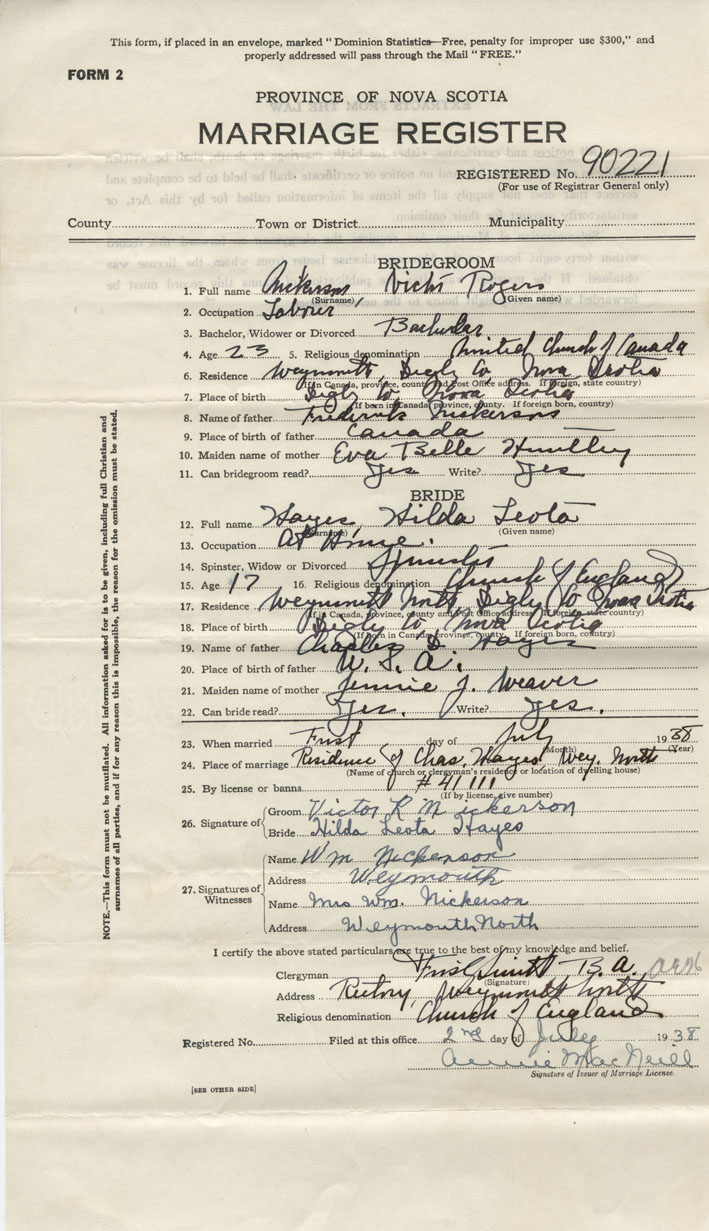 This form, if placed in an envelope, marked "Dominion Statistics—Free, penalty for improper use $300," and
properly addressed will pass through the Mail "FREE."
FORM 2
PROVINCE OF NOVA SCOTIA
MARRIAGE REGISTER
REGISTERED No. 90221
(For use of Registrar General only)
County Town or District Municipality
BRIDEGROOM
1. Full name Nickerson, Victor Rogers
(Surname) (Given name)
2. Occupation Labourer
3. Bachelor, Widower or Divorced Bachelor
4. Age 23 5. Religious denomination United Church of Canada
6. Residence Weymouth, Digby Co Nova Scotia
(If in Canada, province, county and Post Office address. If foreign, state country)
7. Place of birth Digby Co Nova Scotia
(If born in Canada, province, county. If foreign born, country)
8. Name of father Frederick Nickerson
9. Place of birth of father Canada
10. Maiden name of mother Eva Belle Huntley
11. Can bridegroom read? Yes Write? Yes
BRIDE
12. Full name Hayes, Hilda Leota
(Surname) (Given name)
13. Occupation At Home.
14. Spinster, Widow or Divorced Spinster
15. Age 17 16. Religious denomination Church of England
17. Residence Weymouth North Digby Co Nova Scotia
(If in Canada, province, county and Post Office address. If foreign, state country)
18. Place of birth Digby Co Nova Scotia
(If born in Canada, province, county. If foreign born, country)
19. Name of father Charles D. Hayes
20. Place of birth of father U. S. A.
21. Maiden name of mother Jennie J. Weaver
22. Can bride read? Yes. Write? Yes.
23. When married First day of July 1938
(Month) (Year)
24. Place of marriage Residence of Chas. Hayes Wey. North
(Name of church or clergyman's residence or location of dwelling house)
25. By license or banns #41111
(If by license, give number)
26. Signature of Groom Victor R Nickerson
Bride Hilda Leota Hayes
27. Signatures of Witnesses Name Wm Nickerson
Address Weymouth
Name Mrs Wm. Nickerson
Address Weymouth North
I certify the above stated particulars are true to the best of my knowledge and belief.
Clergyman Smith B.A.
(Signature)
Address Rectory, Weymouth North
Religious denomination Church of England
Registered No. Filed at this office 2nd day of July 1938
Annie MacNeill
Signature of Issuer of Marriage License.
[SEE OTHER SIDE]
NOTE.—This form must not be mutilated. All information asked for is to be given, including full Christian and
surnames of all parties, and if for any reason this is impossible, the reason for the omission must be stated.